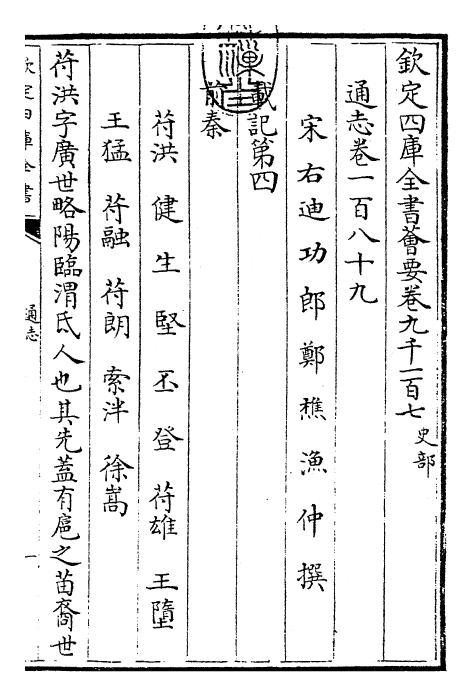 欽定四庫全書薈要卷九千一百七 史部
通志卷一百八十九
宋右迪功郎鄭樵漁仲撰
載記第四
前秦
苻洪 健 生 堅 丕 登 苻雄 王墮
王猛 苻融 苻朗 索泮 徐嵩
苻洪字廣世略陽臨渭氐人也其先蓋有扈之苗裔世
欽定四庫全書
通志
一